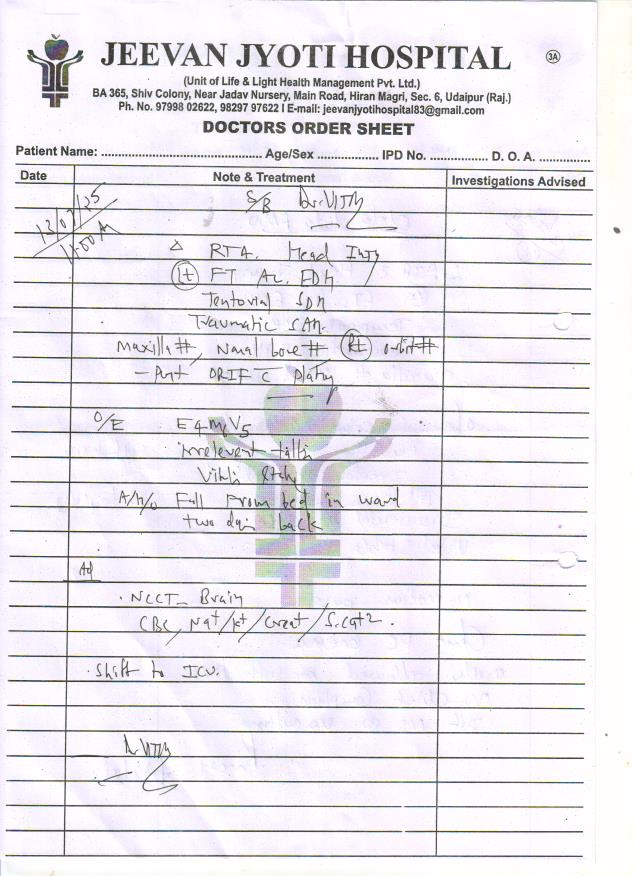 JEEVAN JYOTI HOSPITAL
3A
(Unit of Life & Light Health Management Pvt. Ltd.)
BA 365, Shiv Colony, Near Jadav Nursery, Main Road, Hiran Magri, Sec. 6, Udaipur (Raj.)
Ph. No. 97998 02622, 98297 97622 I E-mail: jeevanjyotihospital83@gmail.com
DOCTORS ORDER SHEET
Patient Name: ........................................ Age/Sex ................ IPD No. ............... D. O. A. .............
Date Note & Treatment Investigations Advised
S/B Dr.
△ RTA. Head Injy
Lt FT EDH
Tentorial SDH
Traumatic SAH.
Maxilla #, Nasal bone # Rt orbit #
- ORIF C plating
O/E E4M6V5
irrelevent talking
Vitaly Stable
A/H/O Fall From bed in ward
two days back
Ad
. NCCT - Brain
CBC, Na+/K+/Creat/S.Ca+2.
. Shift to ICU.
Dr